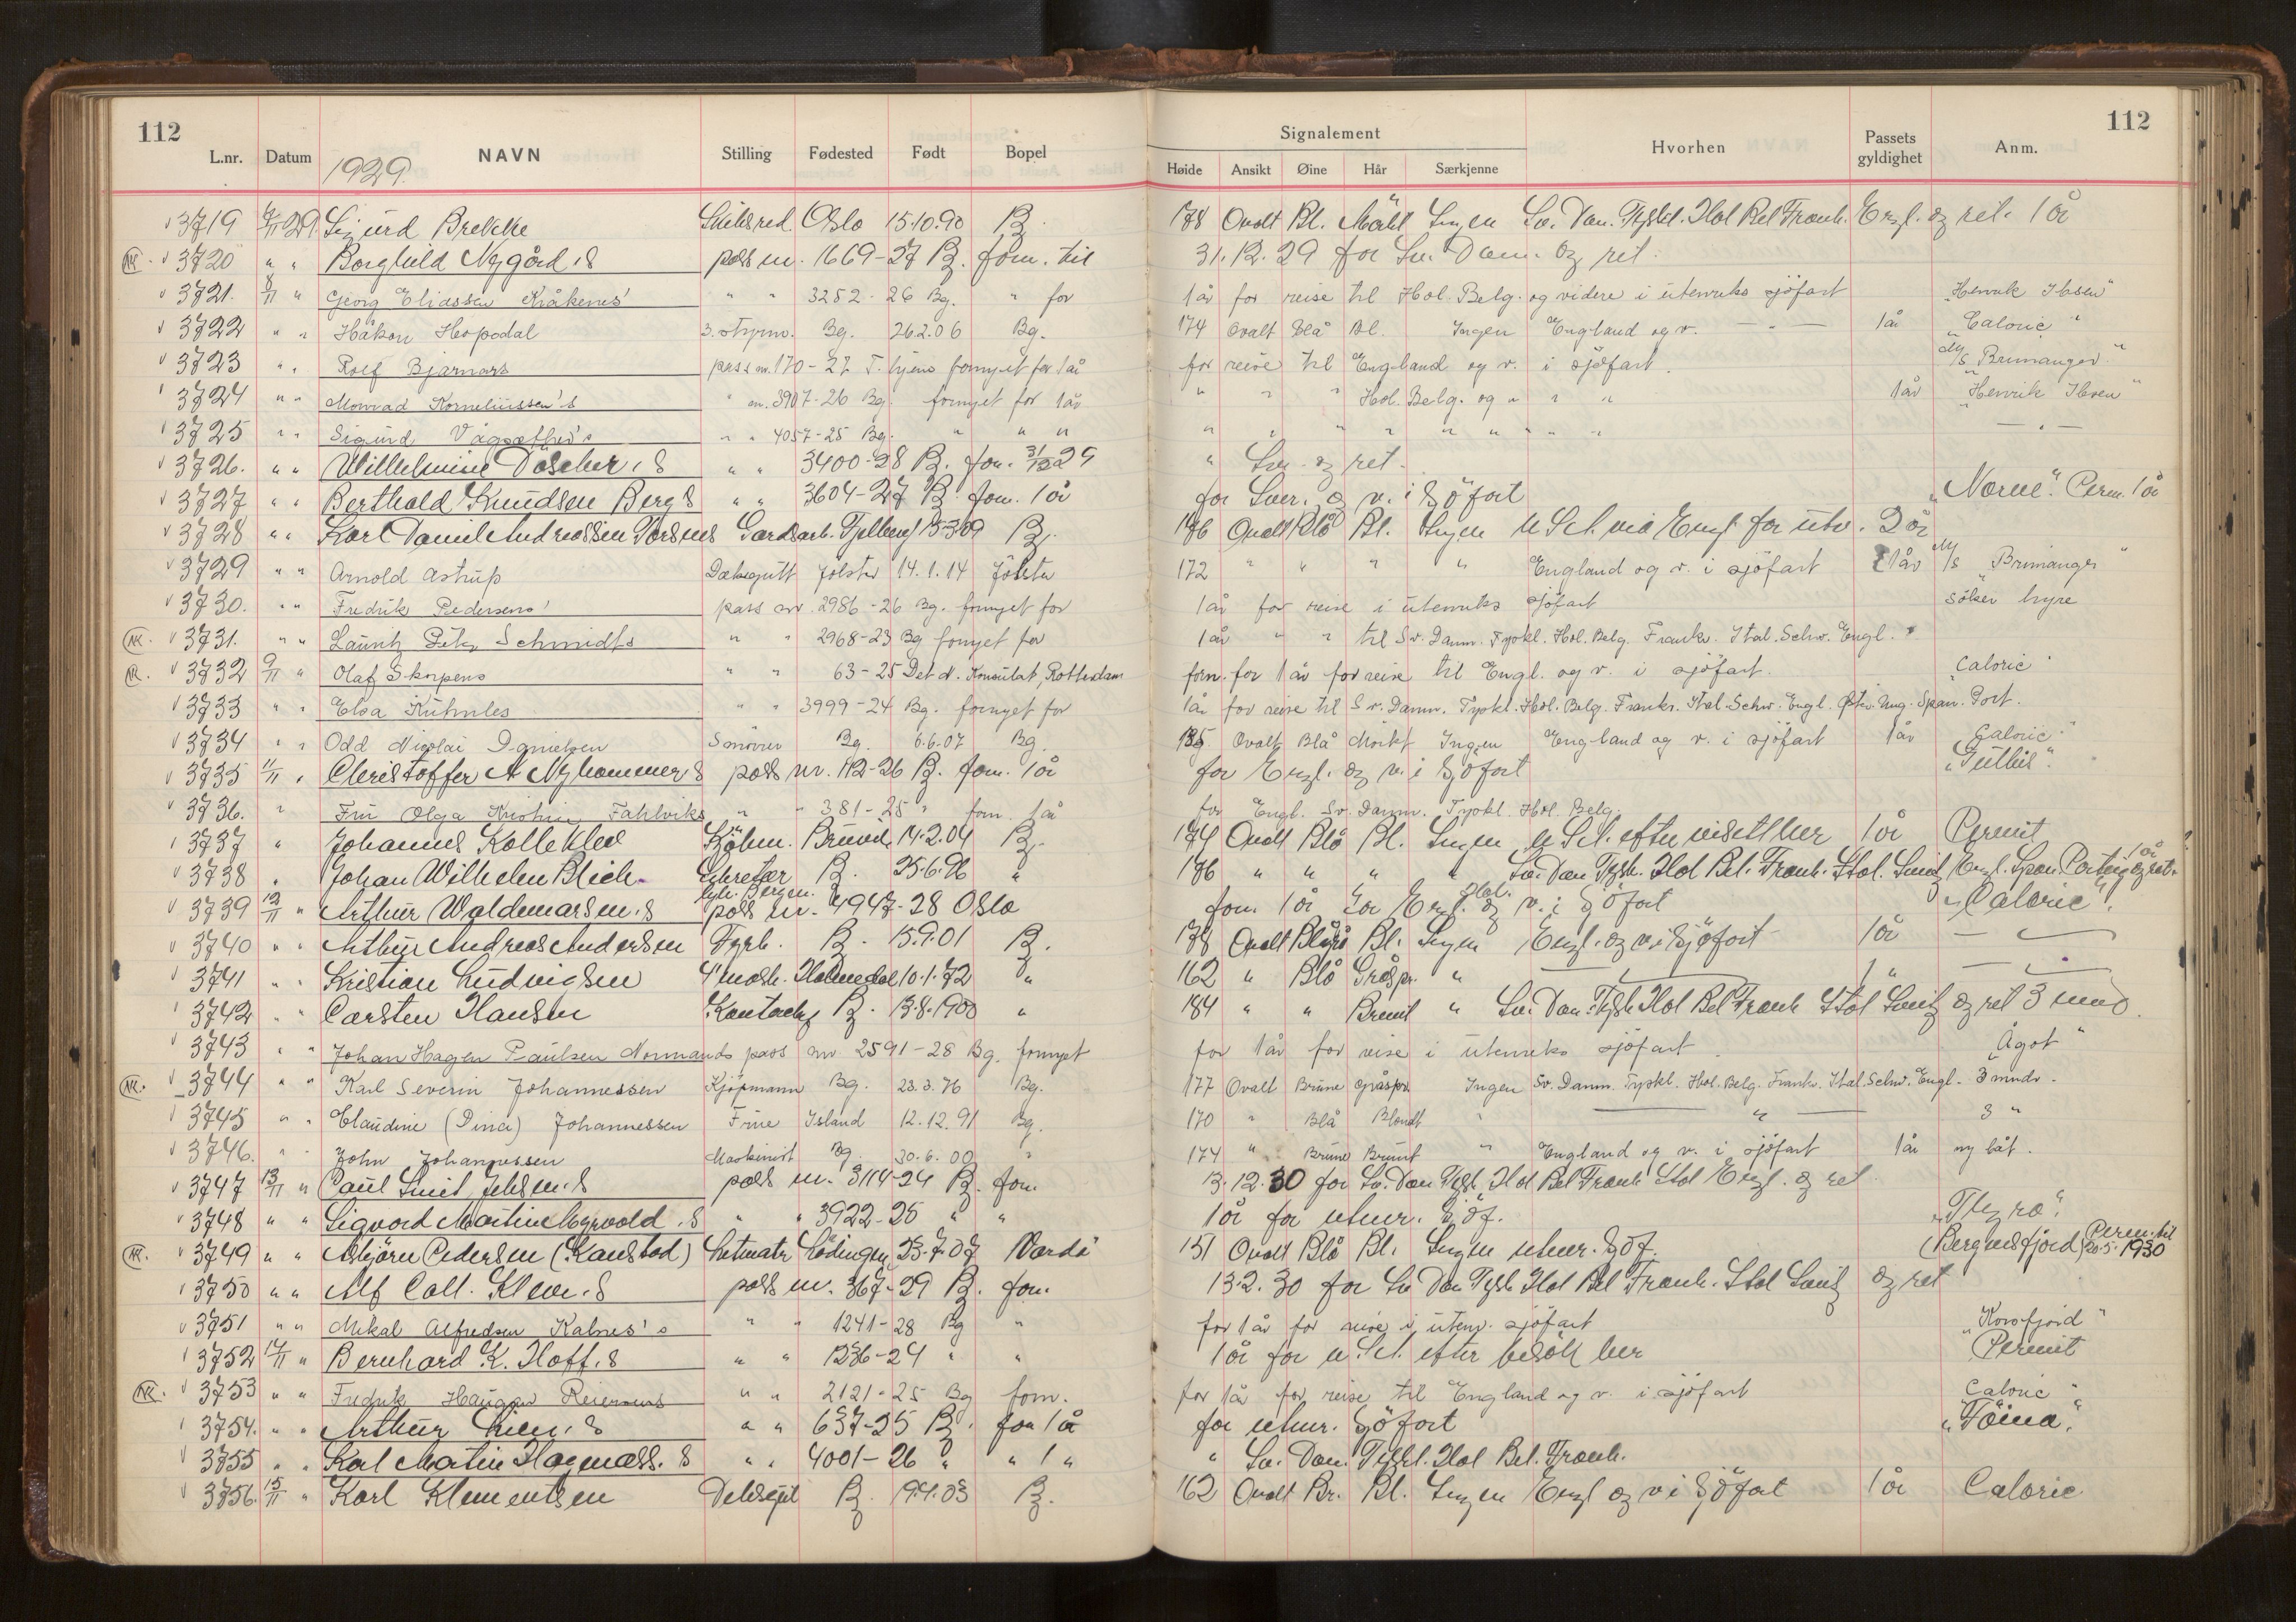 112
112
L.nr. Datum NAVN Stilling Fødested Født Bopel
Signalement Hvorhen Passets gyldighet Anm.
Høide Ansikt Øine Hår Særkjenne
1929.
3719 29 Sigurd Brekke Oslo 15.10.90 B. 178 Ovalt Bl. Ingen Sv. Dan. Tyskl. Hol Bel Frank. Engl. og ret. 1 år
NK. 3720 " " Borghild Nygård,s pass nr. 1669-27 B. forn. til 31.12.29 for Sv. Danm. og ret.
3721. 8/11 " Georg Eliassen Kråkenes' " " 3252-26 Bg. " for 1 år for reise til Hol. Belg. og videre i utenriks sjöfart "Henrik Ibsen"
3722 " " Håkon Hopsdal 3. styrm. Bg. 26.2.06 Bg. 174 Ovalt Blå Bl. Ingen England og v. — " — 1 år "Caloric"
3723 " " Rolf Bjarnars pass nr. 170-27 fornyet for 1 år for reise til England og v. i sjöfart. M/s "Brimanger"
3724 " " Monrad Korneliussen's " nr. 3907-26 Bg. fornyet for 1 år " " " Hol. Belg. og " " " 1 år "Henrik Ibsen"
3725 " " Sigurd " " 4057-25 Bg. " " " " " " " " " " " — " —
3726. " " Wilhelmine Döscher,s " " 3400-28 B. forn. 31/12 29 " Sv. og ret.
3727 " " Berthold Knudsen Bergs " " 3604-27 B. forn. 1 år for Sver. og v. i Sjöfart "Norne". Perm. 1 år
3728 " " Karl Daniel Andreassen Gardsarb. Fjelberg 15.3.09 B. 176 Ovalt Blå Bl. Ingen U.St. via Engl. for utv. 2 år
3729 " " Arnold Astrup Dæksgutt Jölster 14.1.14 Jölster 172 " " " " England og v. i sjöfart 1 år M/s "Brimanger"
3730. " " Fredrik Pedersens' pass nr. 2986-26 Bg. fornyet for 1 år for reise i utenriks sjöfart söker hyre
NK. 3731. " " Schmidts " " 2968-23 Bg fornyet for 1 år " " til Sv. Danm. Tyskl. Hol. Belg. Frankr. Ital. Schw. Engl.
NK. 3732 9/11 " Olaf Skorpens " " 63-25 Det N. Konsulat, Rotterdam forn. for 1 år for reise til Engl. og v. i sjöfart. "Caloric"
3733 " " Elsa Kühnles " " 3999-24 Bg. fornyet for 1 år for reise til Sv. Danm. Tyskl. Hol. Belg. Frankr. Ital. Schw. Engl. Østr. Ung. Span. Port.
3734 " " Odd Nicolai Danielsen Smörer Bg. 6.6.07 Bg. 185 Ovalt Blå Mörkt Ingen England og v. i sjöfart 1 år "Caloric"
3735 11/11 " Christoffer A Nyhammer,s pass nr. 112-26 B. forn. 1 år for Engl. og v. i Sjöfart
3736. " Fru Olga Kristine Fahlviks " " 381-25 " forn. 1 år for Engl. Sv. Danm. Tyskl. Hol. Belg.
3737 " Johannes Kolleklev Kjöbm. Bruvik 14.2.04 B. 174 Ovalt Blå Bl. Ingen U.St. efter viset her 1 år Permit
3738 " Johan Wilhelm Blich Sekretær B. 25.6.96 " 176 " " " " Sv. Dan. Tysk. Hol Bel. Frank. Ital. Sveits Engl. Span. Portug. og ret. 1 år
3739 12/11 " Arthur Waldemarsen,s pass nr. 4947-28 Oslo forn. 1 år for Engl. Hol. og v. i Sjöfart "Caloric".
3740 " " Arthur Andreas Andersen Fyrb. B. 15.9.01 B. 178 Ovalt Blågrå Bl. Ingen Engl. og v. i Sjöfart 1 år — " —
3741 " " Kristian Ludvigsen 4' mask. Holmedal 10.1.72 " 162 " Blå Gråspr. " — " — 1 " — " —
3742 " " Carsten Hansen B. 13.8.1900 " 184 " " Brunt " Sv. Dan. Tysk Hol Bel Frank Ital Sveits og ret 3 mnd.
3743 " " Johan Hagen Paulsen Normanns pass nr. 2591-28 Bg. fornyet for 1 år for reise i utenriks sjöfart. "Ågot"
NK. 3744 " " Karl Severin Johannessen Kjöpmann Bg. 23.3.76 Bg. 177 Ovalt Brune gråspr. Ingen Sv. Danm. Tyskl. Hol. Belg. Frankr. Ital. Schw. Engl. 3 mndr.
3745 " " Claudine (Dina) Johannessen Frue Island 12.12.91 Bg. 170 " Blå Blondt " — " — 3 "
3746. " " John Johannessen Maskinist Bg. 30.6.00 " 174 " Brune Brunt " England og v. i sjöfart 1 år ny båt.
3747 13/11 " Paul Smit Jebsen,s pass nr. 3114-24 B. forn. 13.12.30 for Sv. Dan Tysk Hol Bel Frank Ital Engl. og ret
3748 " " Sigvard Martin Myrvold,s " " 3922-25 " " 1 år for utenr. Sjöf. "Thyra".
NK. 3749 " " Asbjörn Pedersen (Kanstad) Lödingen 25.7.07 Vardö 151 Ovalt Blå Bl. Ingen utenr. Sjöf. Perm. til 20.5.1930
3750 " " Alf Coll. pass nr. 367-29 B. forn. 13.2.30 for Sv Dan Tysk Hol Bel Frank. Ital Sveits og ret
3751 " " Mikal Alfredsen Kalnes's " " 1241-28 Bg " for 1 år for reise i utenr. sjöfart "Korsfjord"
3752 14/11 " Bernhard K. Hoff,s " " 1236-24 " " 1 år for U.St. efter besök her Permit
NK. 3753 " " Fredrik Haugen Reiersens " " 2121-25 Bg forn. for 1 år for reise til England og v. i sjöfart "Caloric"
3754. " " Arthur Lien,s " " 637-25 B. forn 1 år for utenr. Sjöfart "Töina".
3755 " " Karl Martin " " 4001-26 " " 1 " " Sv. Dan. Tyskl. Hol Bel. Frank.
3756. 15/11 " Karl Klementsen Deksgut B. 9.4.03 B. 162 Ovalt Br. Bl. Ingen Engl og v i Sjöfart 1 år Caloric